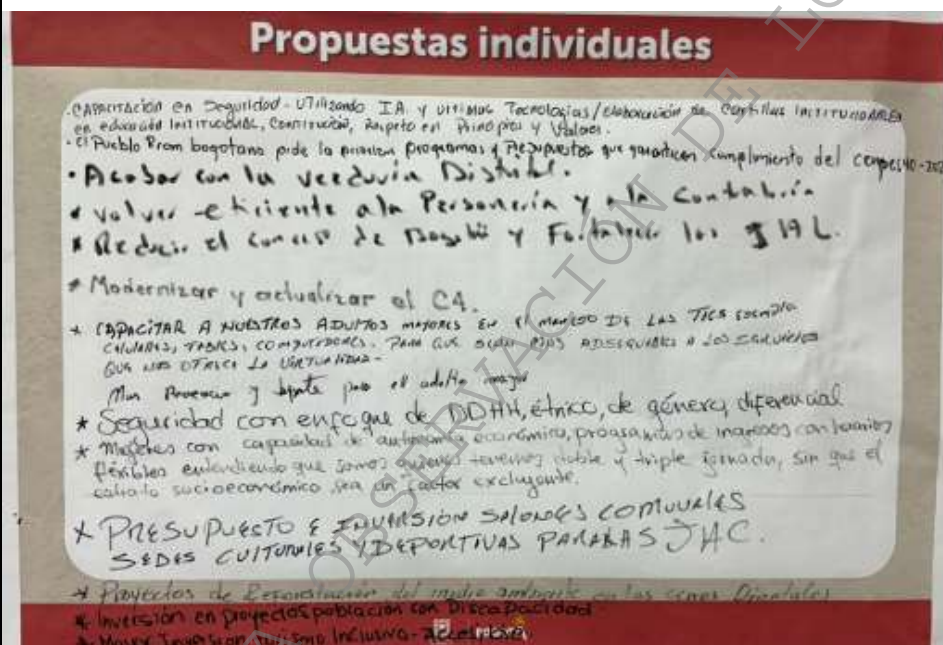 Propuestas individuales
. CAPACITACIÓN en Seguridad - UTilizando IA. y ultimas Tecnologías / elaboración de Cartillas INSTITUCIONALES
en educación INSTITUCIONAL, Constitución, Respeto en Principios y Valores.
. El Pueblo Rrom bogotano pide la programas y Presupuestos que garanticen cumplimiento del conpes 40-
• Acabar con la veeduría Distrital.
* volver eficiente a la Personería y a la Contaloría
* Reducir el Concejo de Bogotá y Fortalecer las JAL.
* Modernizar y actualizar el C4.
* CAPACITAR A NUESTROS ADULTOS mayores EN El manejo DE LAS TICS
CELULARES, TABLES, COMPUTADORES. PARA QUE SEAN A LOS SERVICIOS
QUE NOS OFRECE LA VIRTUALIDAD -
Mas y para el adulto mayor
* Seguridad con enfoque de DDHH, étnico, de género, diferencial
* Mujeres con capacidad de autonomía económica, programas de ingresos con horarios
fléxibles entendiendo que somos quienes tenemos doble y triple jornada, sin que el
estrato socioeconómico sea un factor excluyente.
* PRESUPUESTO E INVERSIÓN SALONES COMUNALES
SEDES CULTURALES Y DEPORTIVAS PARA LAS JAC.
* Proyectos de del medio ambiente en los Orientales
* Inversión en proyectos población con Discapacidad
* Mayor Inversión Turismo Inclusivo - Accesible.
OBSERVACIÓN DE LO